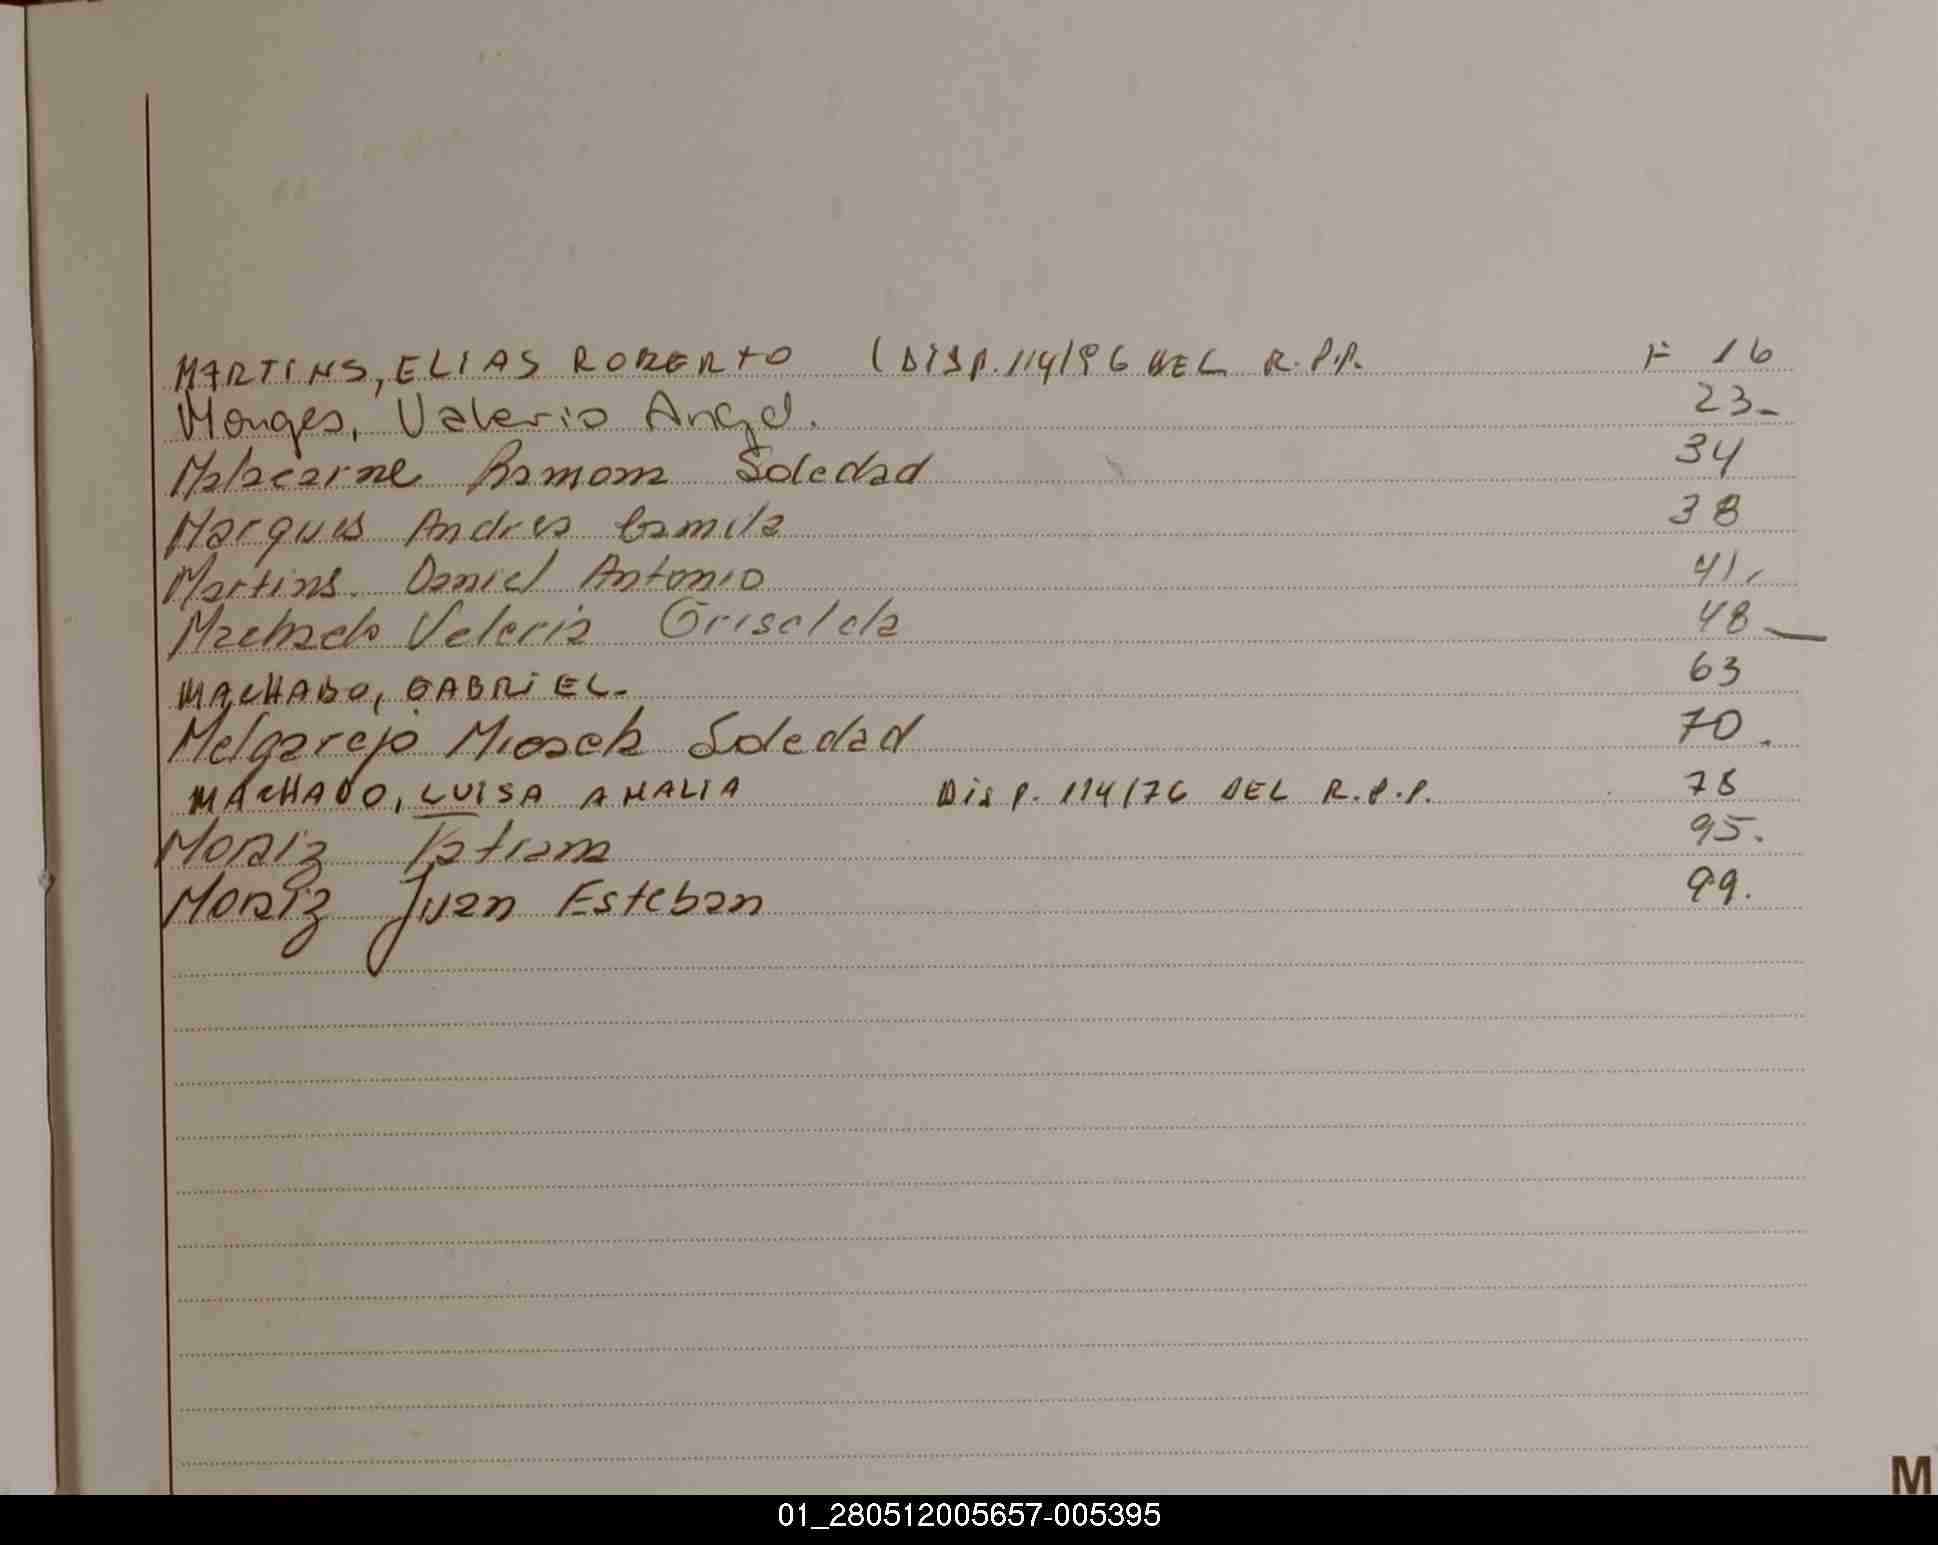 MARTINS, ELIAS ROBERTO (DISP. 114/96 DEL R.P.P. F 16
Monges, Valerio Angel. 23-
Malacarne Ramona Soledad 34
Marques Andres Camila 38
Martins. Daniel Antonio 41.
Machado Valeria Griselda 48
MACHADO, GABRIEL- 63
Melgarejo Soledad 70.
MACHADO, LUISA AMALIA DISP. 114/76 DEL R.P.P. 78
Moniz Tatiana 95.
Moniz Juan Esteban 99.
M
01_280512005657-005395